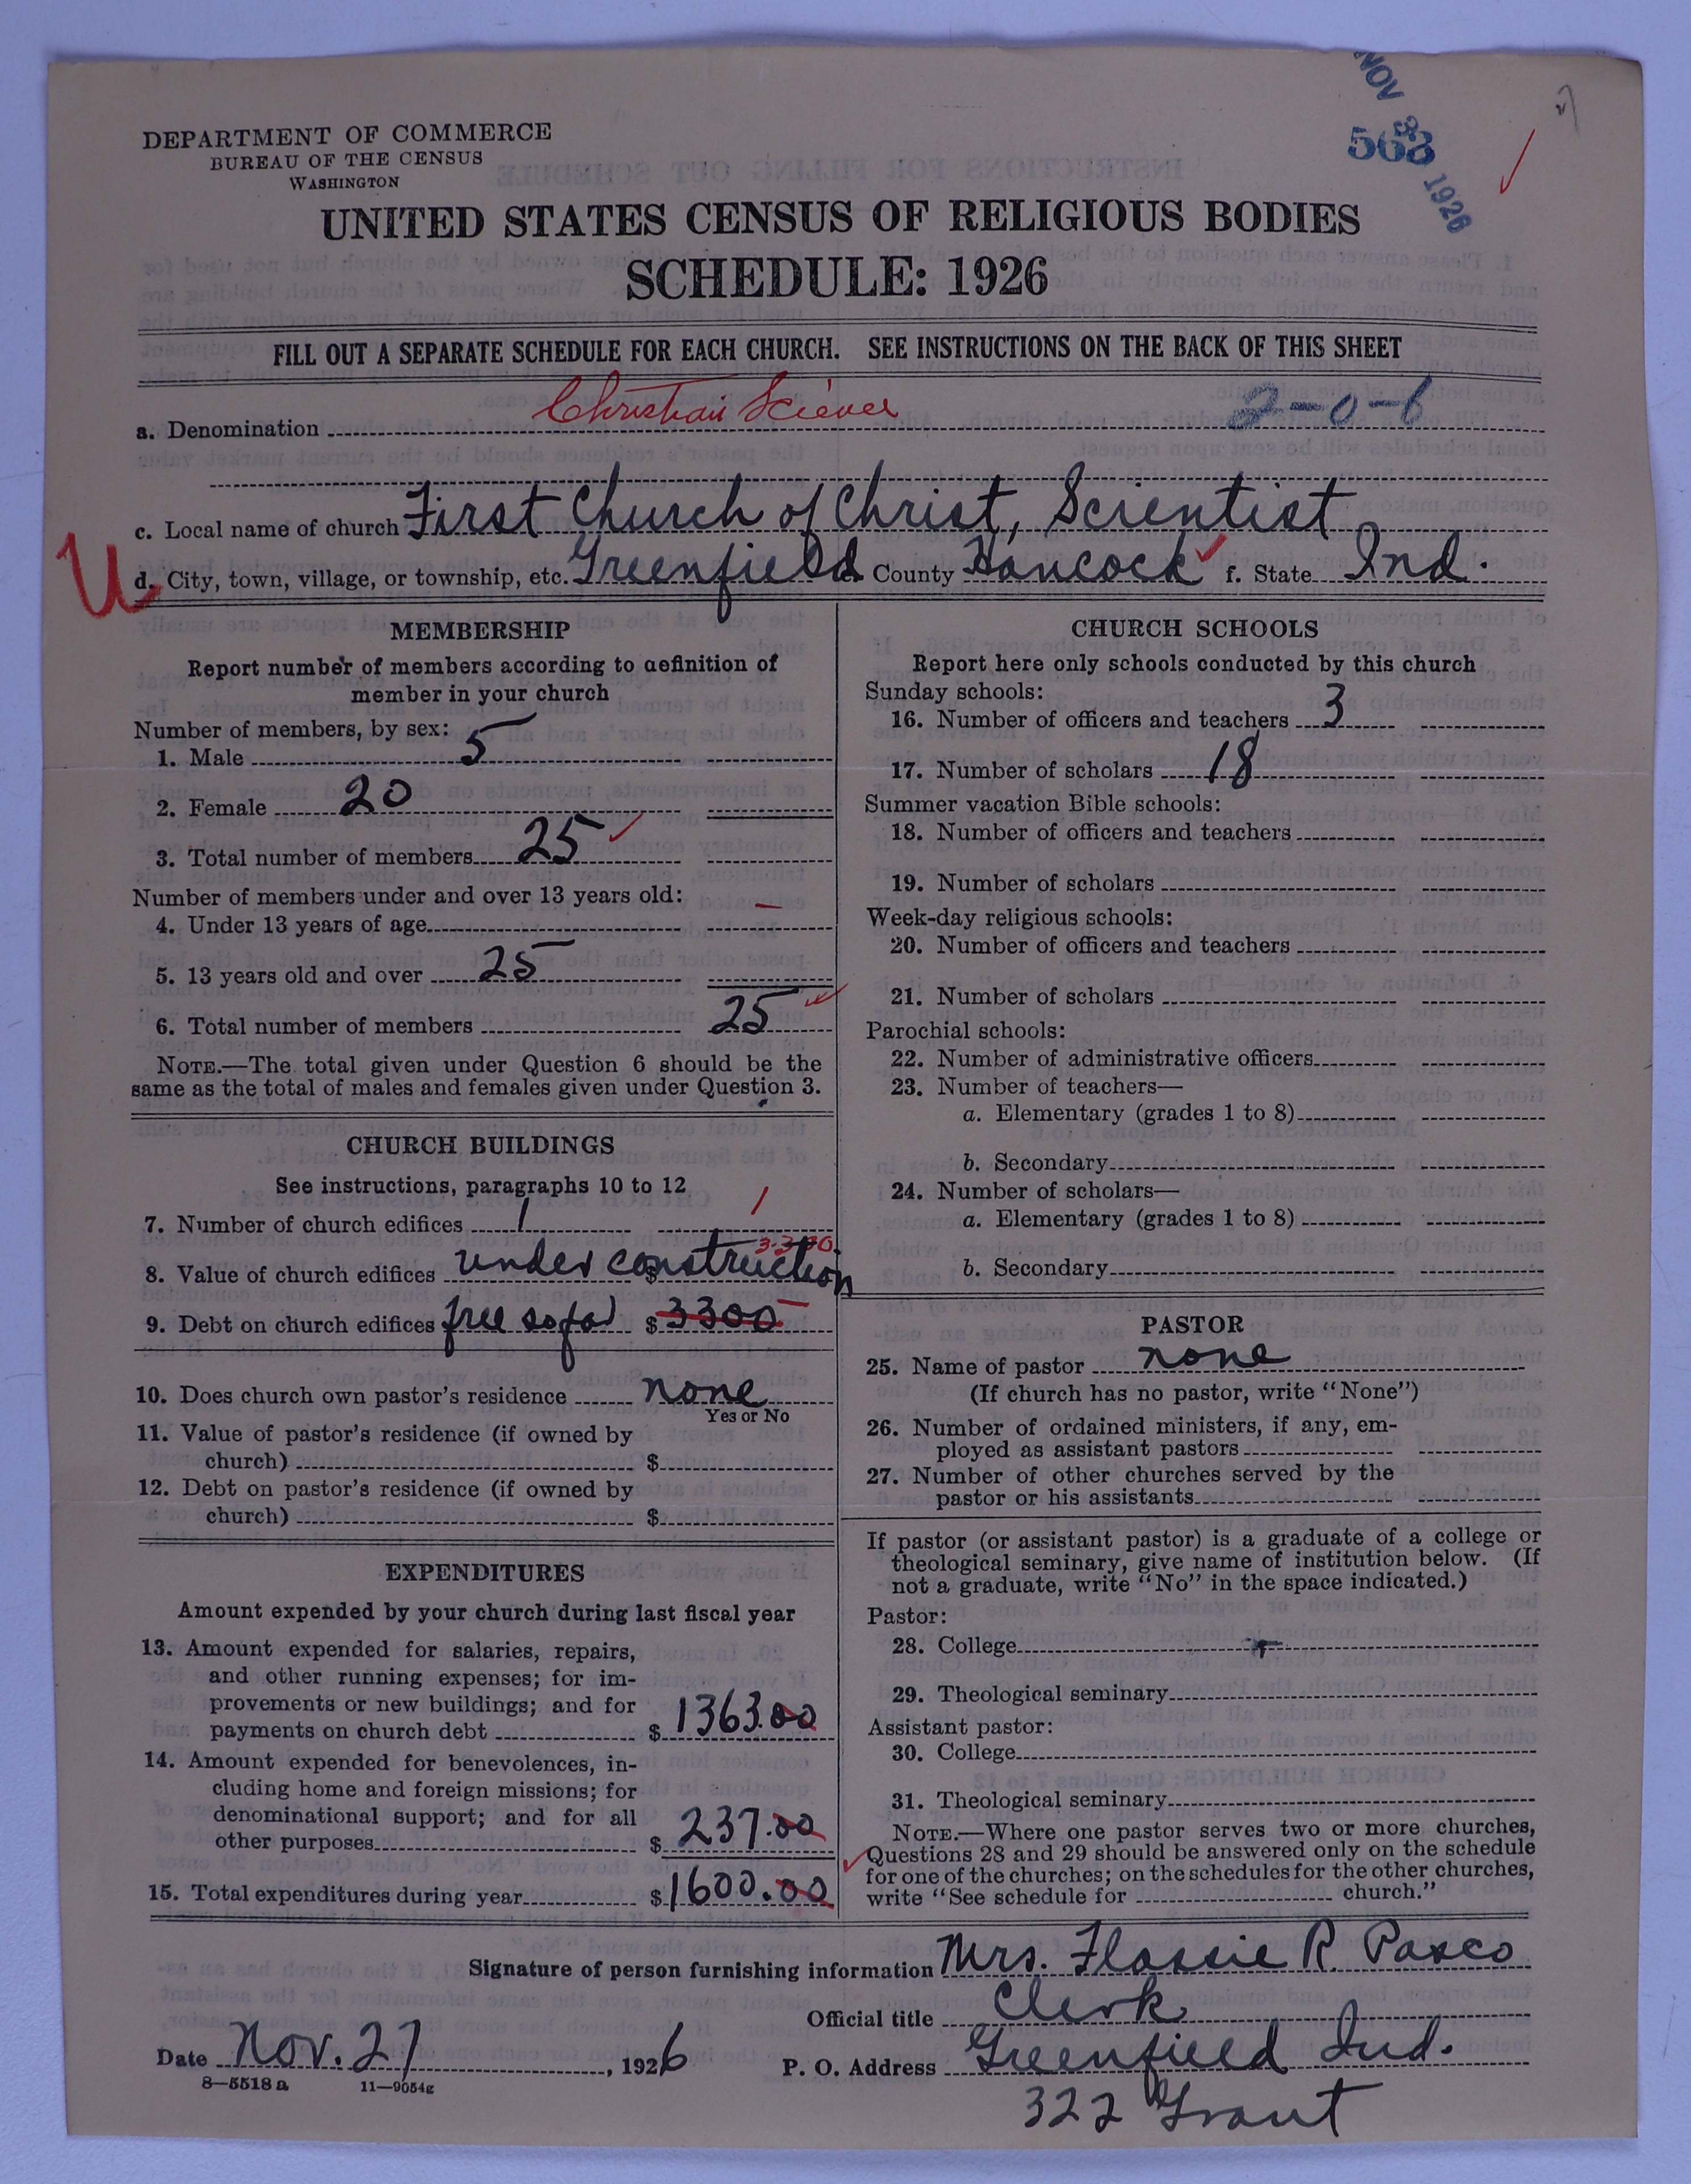 NOV
563
1926
DEPARTMENT OF COMMERCE
BUREAU OF THE CENSUS
WASHINGTON
UNITED STATES CENSUS OF RELIGIOUS BODIES
SCHEDULE: 1926
FILL OUT A SEPARATE SCHEDULE FOR EACH CHURCH. SEE INSTRUCTIONS ON THE BACK OF THIS SHEET
a. Denomination Christian Science 2-0-6
c. Local name of church First Church of Christ, Scientist
U d. City, town, village, or township, etc. Greenfield e. County Hancock f. State Ind.
MEMBERSHIP
Report number of members according to definition of
member in your church
Number of members, by sex:
1. Male 5
2. Female 20
3. Total number of members 25
Number of members under and over 13 years old:
4. Under 13 years of age –
5. 13 years old and over 25
6. Total number of members 25
NOTE.—The total given under Question 6 should be the
same as the total of males and females given under Question 3.
CHURCH BUILDINGS
See instructions, paragraphs 10 to 12
7. Number of church edifices 1 1
8. Value of church edifices under construction $ 3300
9. Debt on church edifices free so far $ 3300
10. Does church own pastor's residence none
Yes or No
11. Value of pastor's residence (if owned by
church) $
12. Debt on pastor's residence (if owned by
church) $
EXPENDITURES
Amount expended by your church during last fiscal year
13. Amount expended for salaries, repairs,
and other running expenses; for im-
provements or new buildings; and for
payments on church debt $ 1363.00
14. Amount expended for benevolences, in-
cluding home and foreign missions; for
denominational support; and for all
other purposes $ 237.00
15. Total expenditures during year $ 1600.00
CHURCH SCHOOLS
Report here only schools conducted by this church
Sunday schools:
16. Number of officers and teachers 3
17. Number of scholars 18
Summer vacation Bible schools:
18. Number of officers and teachers
19. Number of scholars
Week-day religious schools:
20. Number of officers and teachers
21. Number of scholars
Parochial schools:
22. Number of administrative officers
23. Number of teachers—
a. Elementary (grades 1 to 8)
b. Secondary
24. Number of scholars—
a. Elementary (grades 1 to 8)
b. Secondary
PASTOR
25. Name of pastor none
(If church has no pastor, write "None")
26. Number of ordained ministers, if any, em-
ployed as assistant pastors
27. Number of other churches served by the
pastor or his assistants
If pastor (or assistant pastor) is a graduate of a college or
theological seminary, give name of institution below. (If
not a graduate, write "No" in the space indicated.)
Pastor:
28. College
29. Theological seminary
Assistant pastor:
30. College
31. Theological seminary
NOTE.—Where one pastor serves two or more churches,
Questions 28 and 29 should be answered only on the schedule
for one of the churches; on the schedules for the other churches,
write "See schedule for church."
Signature of person furnishing information Mrs. Flossie R. Pasco
Official title Clerk
Date Nov. 27, 1926 P. O. Address Greenfield Ind.
8—5518 a 11—9054g
322 Grant